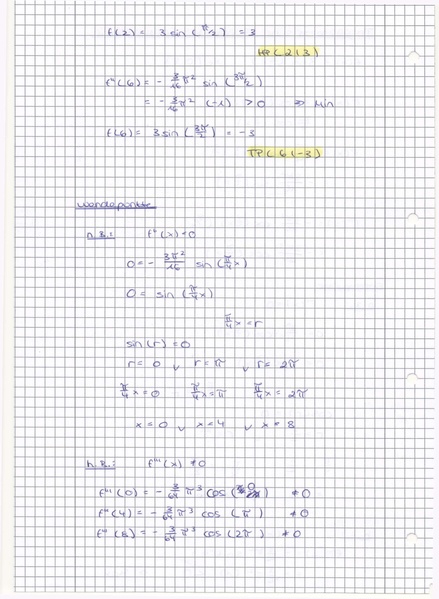 f(2) = 3 sin (π/2) = 3
HP(2|3)
f"(6) = - 3/16 π² sin (3π/2)
= - 3/16 π² (-1) > 0 ⇒ Min
f(6) = 3 sin (3π/2) = -3
TP(6|-3)
Wendepunkte
n.B.: f"(x)=0
0 = - 3π²/16 sin (π/4 x)
0 = sin (π/4 x)
π/4 x = r
sin(r) = 0
r = 0 ∨ r = π ∨ r = 2π
π/4 x = 0 π/4 x = π π/4 x = 2π
x = 0 ∨ x = 4 ∨ x = 8
h.B.: f'''(x) ≠ 0
f'''(0) = - 3/64 π³ cos (0) ≠ 0
f'''(4) = - 3/64 π³ cos (π) ≠ 0
f'''(8) = - 3/64 π³ cos (2π) ≠ 0